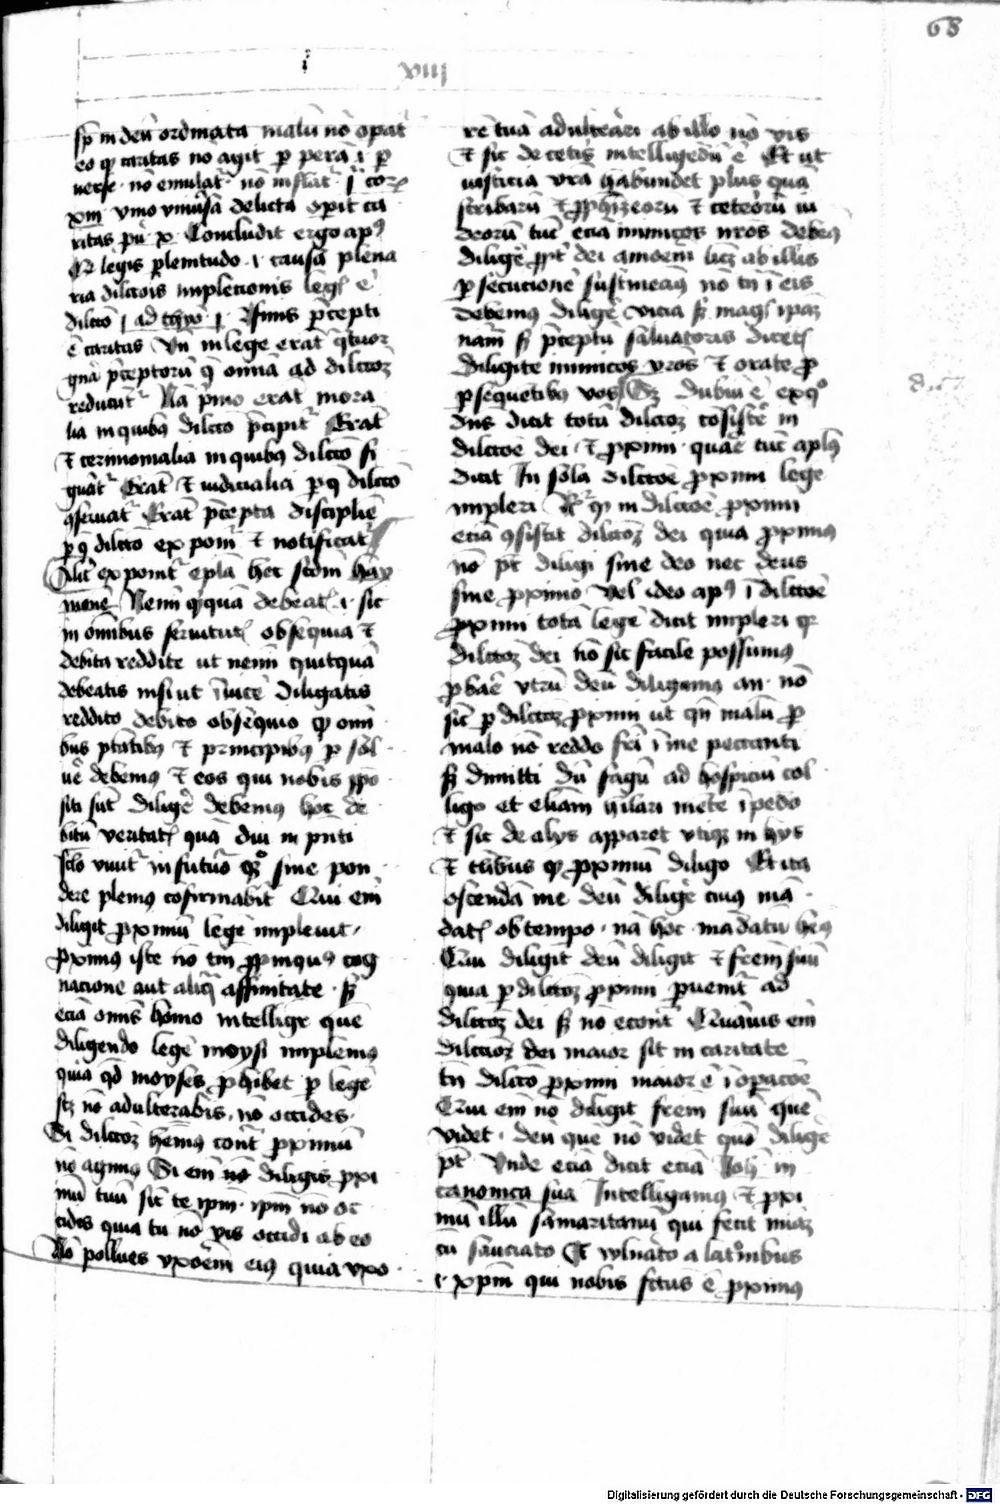 68
i
viij
sp̄ in deū ordinata malū nō opat᷒
eo q̄ caritas nō agit p̱ perā .i. p̱
uerse · nō emulat᷒ · nō inflat᷒ · j cor᷒
xiij vmo vniūsa delicta opit ca
ritas pu x Concludit ergo apꝰ
legis plenitudo .i. causa plena
ria dilc̄ōis impletionis leg᷒ ē
dilc̄o j ad thyo j finis p̄cepti
ē caritas Vn̄ in lege erāt q̄tuor
gn̄a p̄ceptorū q̄ om̄ia ad dilc̄oꝫ
reducūt᷒ Nā p̄mo erāt mora
lia in quibꝰ dilc̄o p̄cipit᷒ Erāt
⁊ cerimonialia in quibꝰ dilc̄o si
gnāt᷒ Erāt ⁊ iudicialia p̱ q̄ dilc̄o
ꝯseruat᷒ Erāt p̄cepta discipline
p̱ q̄ dilc̄o exponit᷒ ⁊ notificat᷒
Alit᷒ exponit᷒ epl̄a hec scd̄m hay
monē Nemi q̄cquā debeat᷒ .i. sic
in om̄ibus seruitut᷒ obsequia ⁊
debita reddite ut nemi quitquā
debeatis nisi ut īuicē diligatis
reddito debito obsequio q̄ omi
bus ptātibꝰ ⁊ principibꝰ p̱ sol
uē debemꝰ ⁊ eos qui nobis ꝓpo
siti sūt diligē debemꝰ hoc de
bitū veritat᷒ quā diu in pn̄ti
sclo viuit᷒ in futurō qꝫ sine pon
dere plenꝰ cōfirmabit Qui em̄
diligit ꝓximū legē impleuit ·
ꝓximꝰ iste nō tm̄ ꝓpinquꝰ cog
nacione aut aliq̄ affinitate · sꝫ
ecia om̄is homo intelligit᷒ quē
diligendo legē moysi implemꝰ
quia qd̄ moyses ꝓhibet p̱ legē
scꝫ nō adulterabis · nō occides ·
Si dilc̄oꝫ hem̄ꝰ cont᷒ ꝓximū
nō agimꝰ Si em̄ nō diligis ꝓxi
mū tuū sic te ip̄m · ip̄m nō oc
cides quia tu nō vis occidi ab eo
Nō pollues vxorem eiꝰ quia vxo ·
rē tuā adulterari ab illo nō vis
⁊ sic de cetis intelligedū ē Et ut
iusticia vrā habundet plus quā
scribarū ⁊ ꝓph̄izeorū ⁊ ceterorū iu
deorū tūc ecia inimicos nr̄os debemꝰ
diligē ꝓpt᷒ dei amorem licꝫ ab illis
p̱secutionē sustineamꝰ nō tn̄ ī eis
debemꝰ diligē vicia sꝫ mag᷒ ipaꝫ
nam sꝫ p̄ceptū saluatoris dicet᷒
diligite inimicos vr̄os ⁊ orate ꝓ
p̱sequētibꝰ vos Sꝫ dubiū ē exqͦ
dn̄s dicit totū dilc̄oꝫ cōsistē in
dilc̄oe dei ⁊ ꝓximi · quare tūc aplꝰ
dicit In sola dilc̄oe ꝓximi lege
impleri Rᵒ q̄ in dilc̄oe ꝓximi
ecia ꝯsistit dilc̄oꝫ dei quia ꝓximꝰ
nō pt̄ diligi sine deo nec deus
sine ꝓximo Vel ideo apꝰ ī dilc̄oe
ꝓximi totā legē dicit impleri qr
dilc̄oꝫ dei nō sic facile possumꝰ
ꝓbarē vtrū deū diligamꝰ an · nō
sic p̱ dilc̄oꝫ ꝓximi ut qn̄ malū ꝓ
malo nō reddo fr̄i ī me peccanti
sꝫ dimitti dū sagū ad hospiciū col
ligo et etiam hilari mēte īpedo
⁊ sic de alijs apparet vtiqꝫ in hijs
⁊ t̄libus q̄ ꝓximū diligo Et ita
ostendā me deū diligē cuiꝰ mā ·
dat᷒ obtempo · nā hoc mādatū hemꝰ
Qui diligit deū diligit ⁊ frem̄ suū
quia p̱ dilc̄oꝫ ꝓximi p̱uenit᷒ ad
dilc̄oꝫ dei sꝫ nō econt᷒ Quāuis em̄
dilc̄oꝫ dei maior sit in caritate
tn̄ dilc̄o ꝓximi maior ē ī opacoe
Qui em̄ nō diligit frem̄ suū quē
videt · deū quē nō videt quō diligē
pt̄ Vnde ecia dicit ecia Ioh̄ in
canonica sua Intelligamꝰ ⁊ ꝓxi
mū illū samaritanū qui fecit miaꝫ
cū sauciato Et vulnato a latͦnibus
.i. xp̄m qui nobis fctus ē ꝓximꝰ
Digitalisierung gefördert durch die Deutsche Forschungsgemeinschaft - DFG